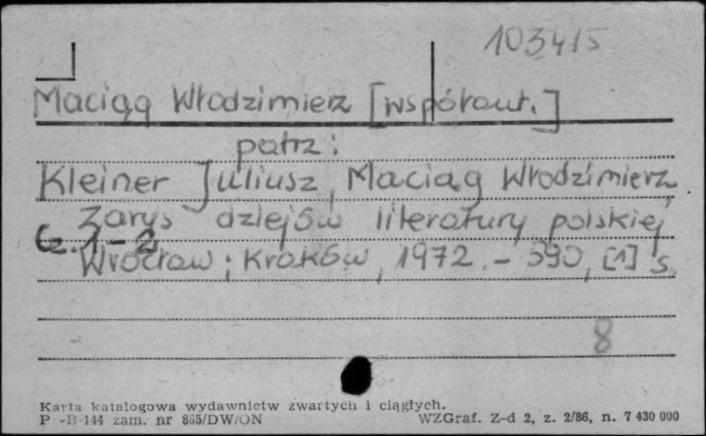 103415
Maciąg Włodzimierz [współaut.]
patrz:
Kleiner Juliusz, Maciąg Włodzimierz
Zarys dziejów literatury polskiej
Cz. 1-2
Wrocław; Kraków, 1972. - 590, [1] s.
8
Karta katalogowa wydawnictw zwartych i ciągłych.
P -B-144 zam. nr 865/DW/ON WZGraf. Z-d 2, z. 2/86, n. 7 430 000